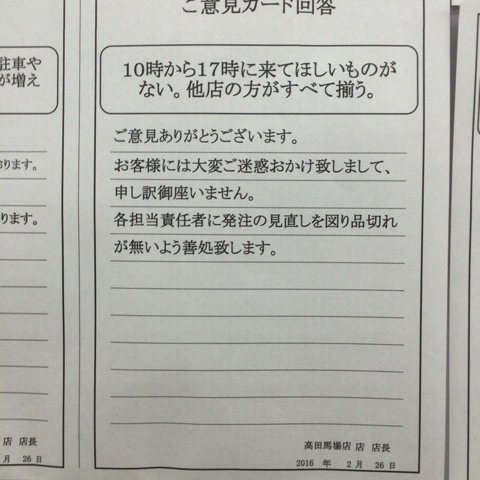 ご意見カード回答
10時から17時に来てほしいものが
ない。他店の方がすべて揃う。
ご意見ありがとうございます。
お客様には大変ご迷惑おかけ致しまして、
申し訳御座いません。
各担当責任者に発注の見直しを図り品切れ
が無いよう善処致します。
高田馬場店 店 店長
2016 年 2月 26日
駐車や
が増え
おります。
ります。
店 店長
月 26日